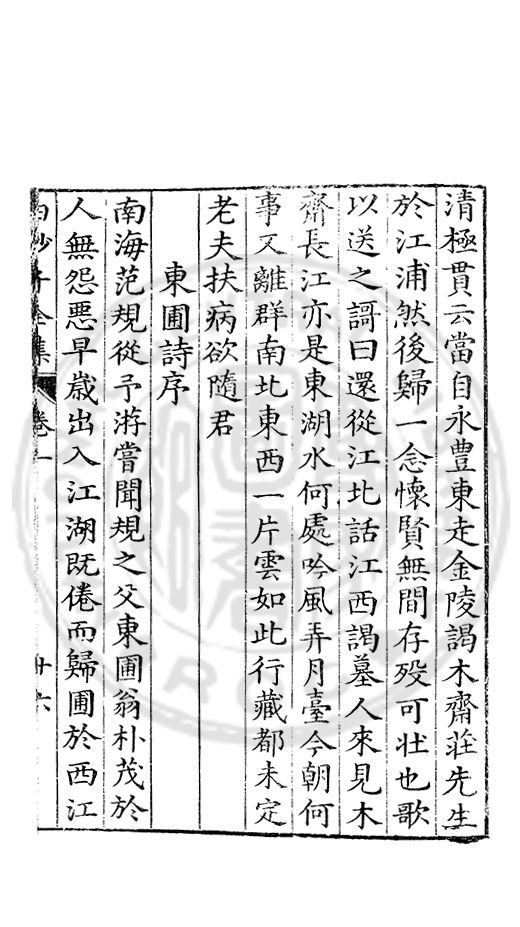 清極貫云當自永豊東走金陵謁木齋莊先生
於江浦然後歸一念懷賢無間存殁可壮也歌
以送之謌曰還從江北話江西謁墓人來見木
齋長江亦是東湖水何處吟風弄月臺今朝何
事又離群南北東西一片雲如此行藏都未定
老夫扶病欲隨君
東圃詩序
南海范規從予游嘗聞規之父東圃翁朴茂於
人無怨惡早歲出入江湖既倦而歸圃於西江
白沙子全集 卷一 廿六